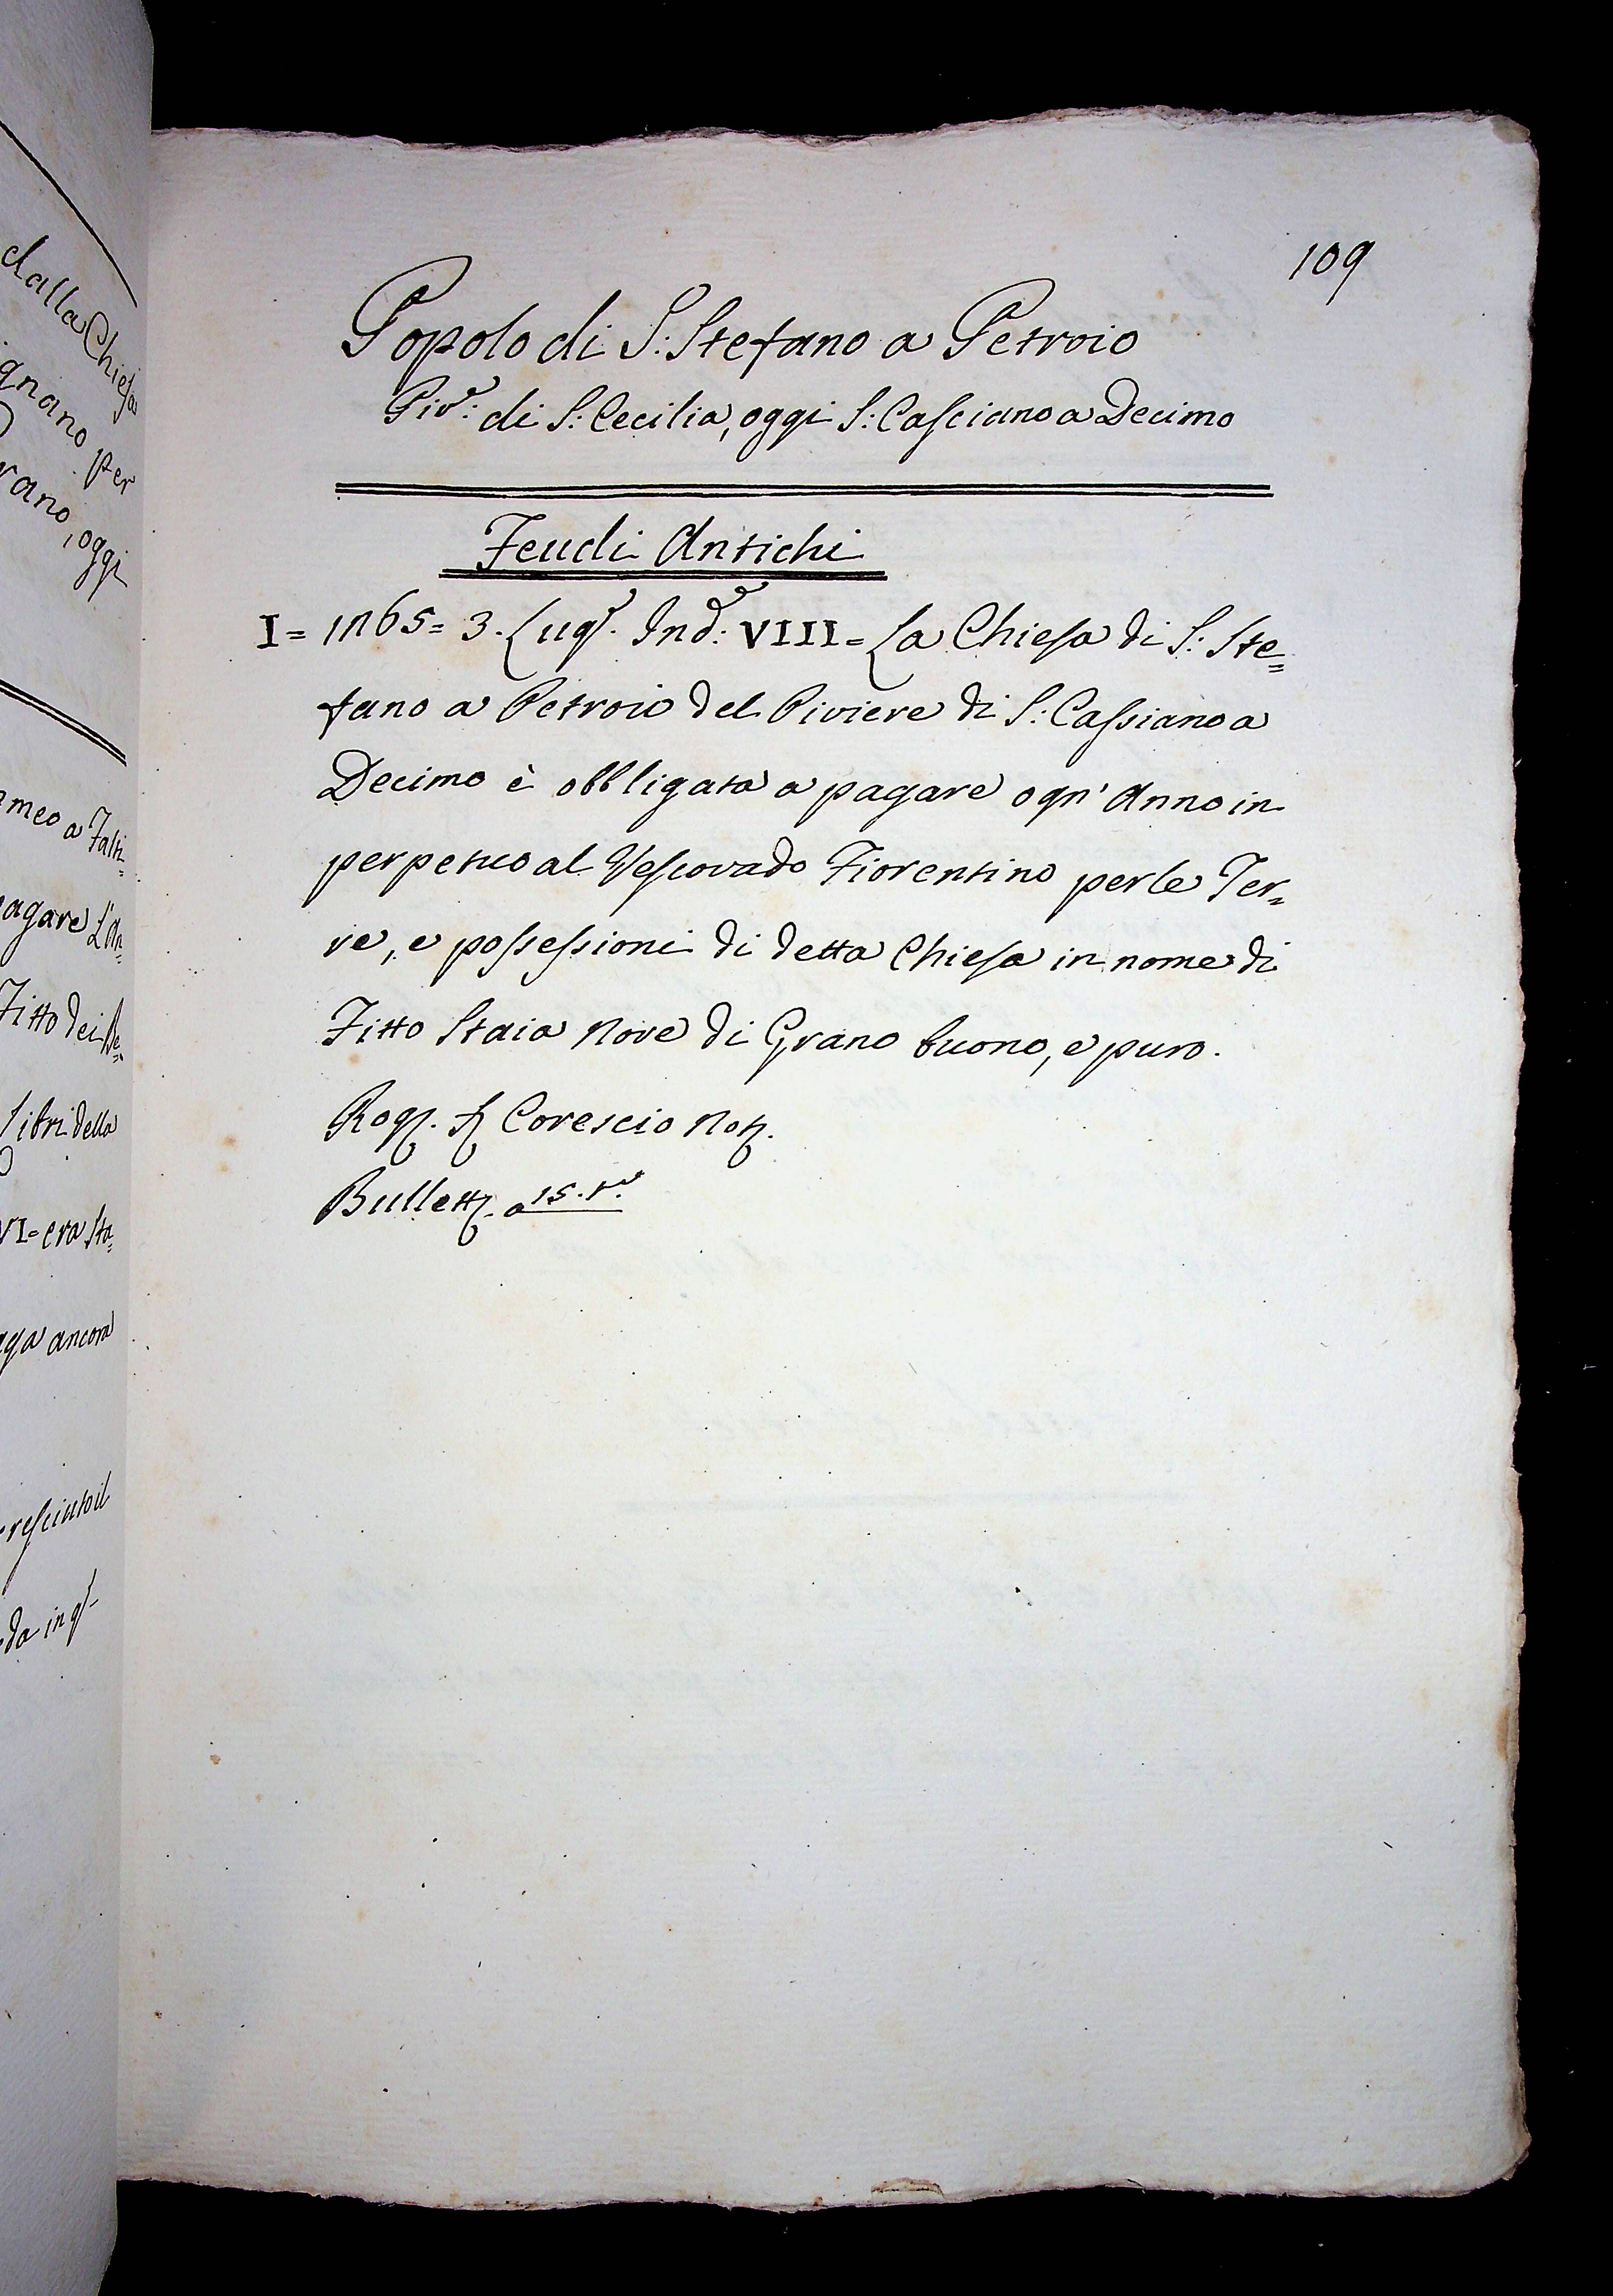 dalla Chiesa
gnano per
rano, oggi
meo a Falti=
agare L'An=
Fitto dei Be=
Libri della
VI= era sta=
aga ancora
resciuto il
da in q
109
Popolo di S: Stefano a Petroio
Piv.e: di S: Cecilia, oggi S: Casciano a Decimo
Feudi Antichi
I= 1265= 3. Lug. Ind.e: VIII= La Chiesa di S: Ste=
fano a Petroio del Piviere di S: Cassiano a
Decimo è obbligata a pagare ogn' Anno in
perpetuo al Vescovado Fiorentino per le Ter=
re, e possessioni di detta Chiesa in nome di
Fitto Staia Nove di Grano buono, e puro.
Rog. Corescio Not.
Bullett. a 15. t.o